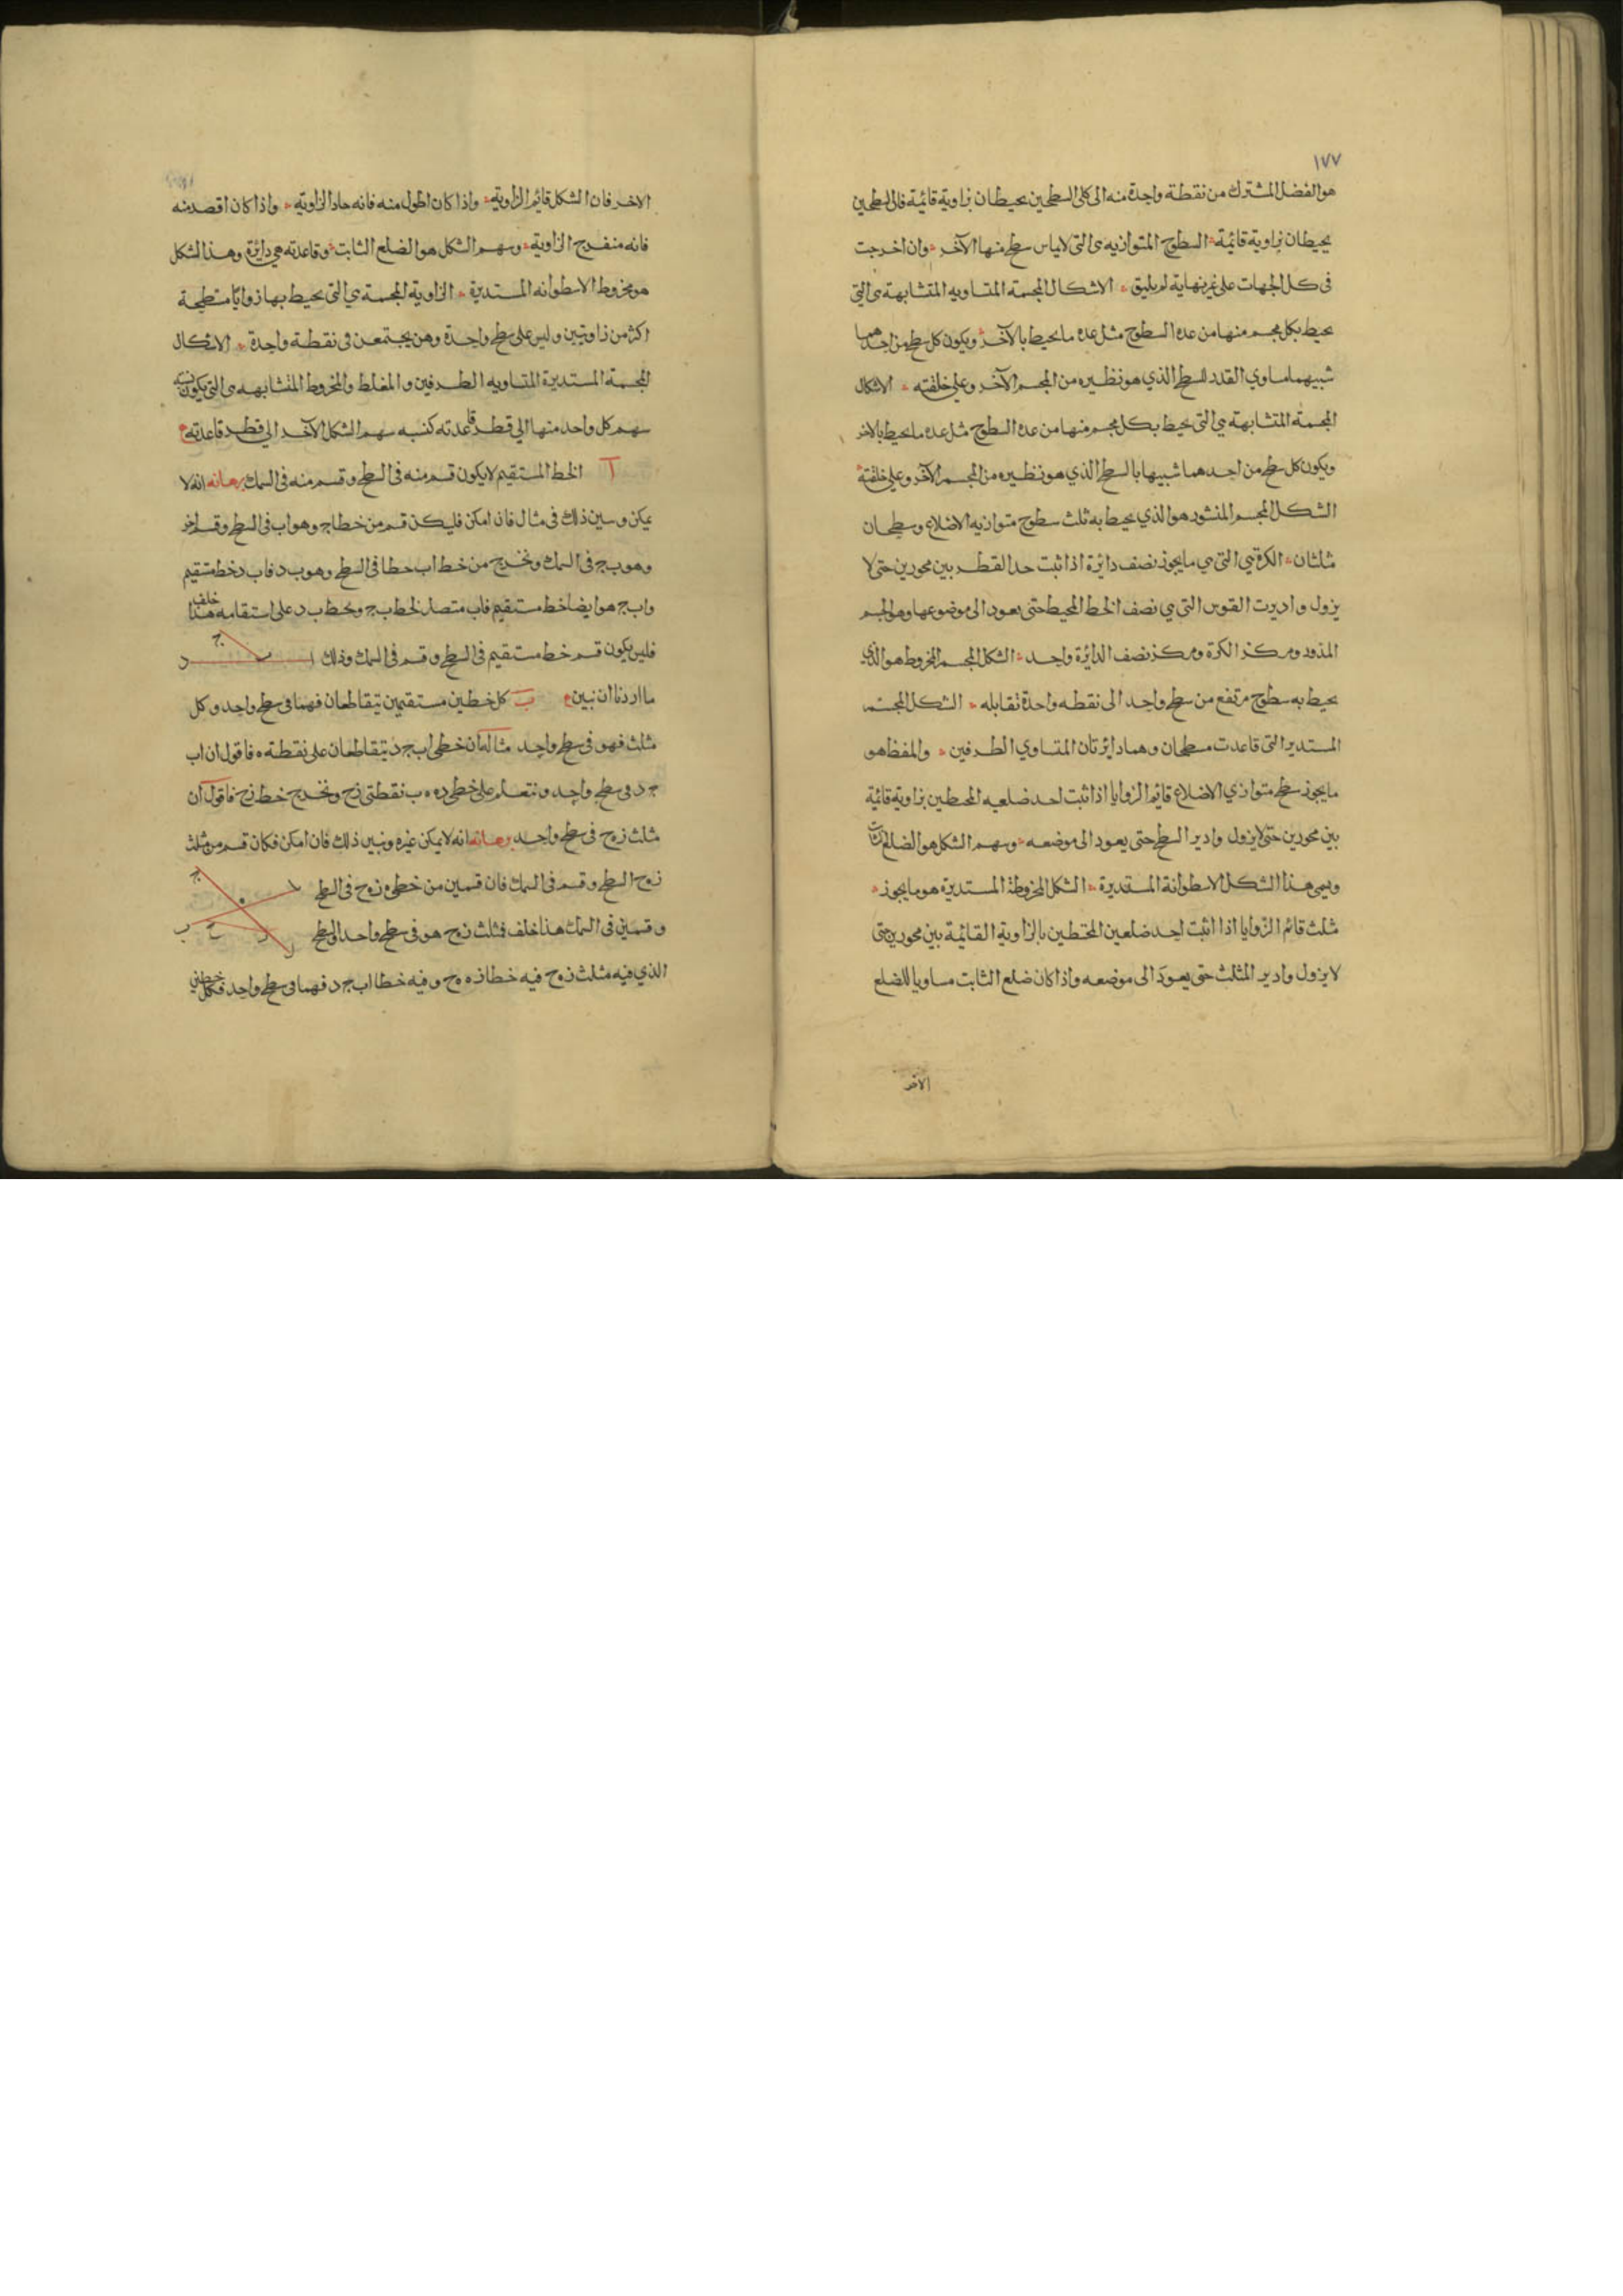 ١٧٧
هو الفضل المشترك من نقطة واحدة منه الى كلى السطحين يحيطان بزاوية قائمة فان السطحين
يحيطان بزاوية قائمة السطوح المتوازيه هى التى لا يماس سطح منها الآخر وان اخرجت
فى كل الجهات على غير نهاية لم يلتق الاشكال المجسمة المتساويه المتشابهة هى التى
يحيط بكل مجسم منها من عدة السطوح مثل عدة ما يحيط بالآخر ويكون كل سطح من احدهما
شبيها مساوي القدر للسطح الذي هو نظيره من المجسم الآخر وعلى خلقته الاشكال
المجسمة المتشابهة هي التى يحيط بكل مجسم منها من عدة السطوح مثل عدة ما يحيط بالاخر
ويكون كل سطح من احدهما شبيها بالسطح الذي هو نظيره من المجسم الآخر وعلى خلقته
الشكل المجسم المنشور هو الذي يحيط به ثلث سطوح متوازيه الاضلاع وسطحان
مثلثان الكرة هي التى هي ما يجوز نصف دائرة اذا ثبت حد القطر بين محورين حتى لا
يزول واديرت القوس التى هي نصف الخط المحيط حتى يعود الى موضوعها وهو الجسم
المدور ومركز الكرة ومركز نصف الدائرة واحد الشكل المجسم المخروط هو الذي
يحيط به سطوح مرتفع من سطح واحد الى نقطه واحدة تقابله الشكل المجسم
المستدير التى قاعدت مسطحان وهما دايرتان المتساوي الطرفين والمغلط هو
ما يجوز سطح متوازي الاضلاع قايم الزوايا اذا ثبت احد ضلعيه المحيطين بزاوية قائمة
بين محورين حتى لا يزول وادير السطح حتى يعود الى موضعه وسهم الشكل هو الضلع الثابت
ويسمى هذا الشكل الاسطوانة المستديرة الشكل المخروطة المستديرة هو ما يجوز
مثلث قائم الزوايا اذا اثبت احد ضلعين المحيطين بالزاوية القائمة بين محورين حتى
لا يزول وادير المثلث حتى يعود الى موضعه واذا كان ضلع الثابت مساويا للضلع
الاخر
الاخر فان الشكل قايم الزاوية واذا كان اطول منه فانه حاد الزاوية واذا كان اقصر منه
فانه منفرج الزاوية وسهم الشكل هو الضلع الثابت وقاعدته هي دائرة وهذا الشكل
هو مخروط الاسطوانه المستديرة الزاوية المجسمة هي التى يحيط بها زوايا مسطحة
اكثر من زاويتين وليس على سطح واحدة وهن يجتمعن فى نقطة واحدة الاشكال
المجسمة المستديرة المتساويه الطرفين والمغلط والمخروط المتشابهه هى التى يكون نسبة
سهم كل واحد منها الي قطر قاعدته كنسبه سهم الشكل الآخر الي قطر قاعدته
آ الخط المستقيم لا يكون قسم منه فى السطح وقسم منه فى السمك برهانه انه لا
يمكن وسبين ذلك فى مثال فان امكن فليكن قسم من خط اج وهو اب فى السطح وقسم اخر
وهو ب ج فى السمك ونخرج من خط اب خطا فى السطح وهو ب د فاب د خط مستقيم
واب ج هو ايضا خط مستقيم فاب متصل لخط ب ج وبخط ب د على استقامه هذا خلف
فليس يكون قسم خط مستقيم فى السطح وقسم فى السمك وذلك
ا ب ج د
ما اردنا ان نبين ب كل خطين مستقيمين يتقاطعان فهما فى سطح واحد وكل
مثلث فهو فى سطح واحد مثاله ان خطى اب ج د يتقاطعان على نقطة ه فاقول ان اب
ج د فى سطح واحد ونتعلم على خطى د ه ه ب نقطتى ز ح ونخرج خط ز ح فاقول ان
مثلث ز ه ح فى سطح واحد برهانه انه لا يمكن غيره ونبين ذلك فان امكن فكان قسم من مثلث
ز ه ح السطح وقسم فى السمك فان قسمين من خطى ه ز ه ح فى السطح
وقسمين فى السمك هذا خلف فمثلث ز ه ح هو فى سطح واحد والسطح
ا ج ه ب ح ز د
الذي فيه مثلث ز ه ح فيه خطا ز ه ه ح وفيه خطا اب ج د فهما فى سطح واحد فكل خطين